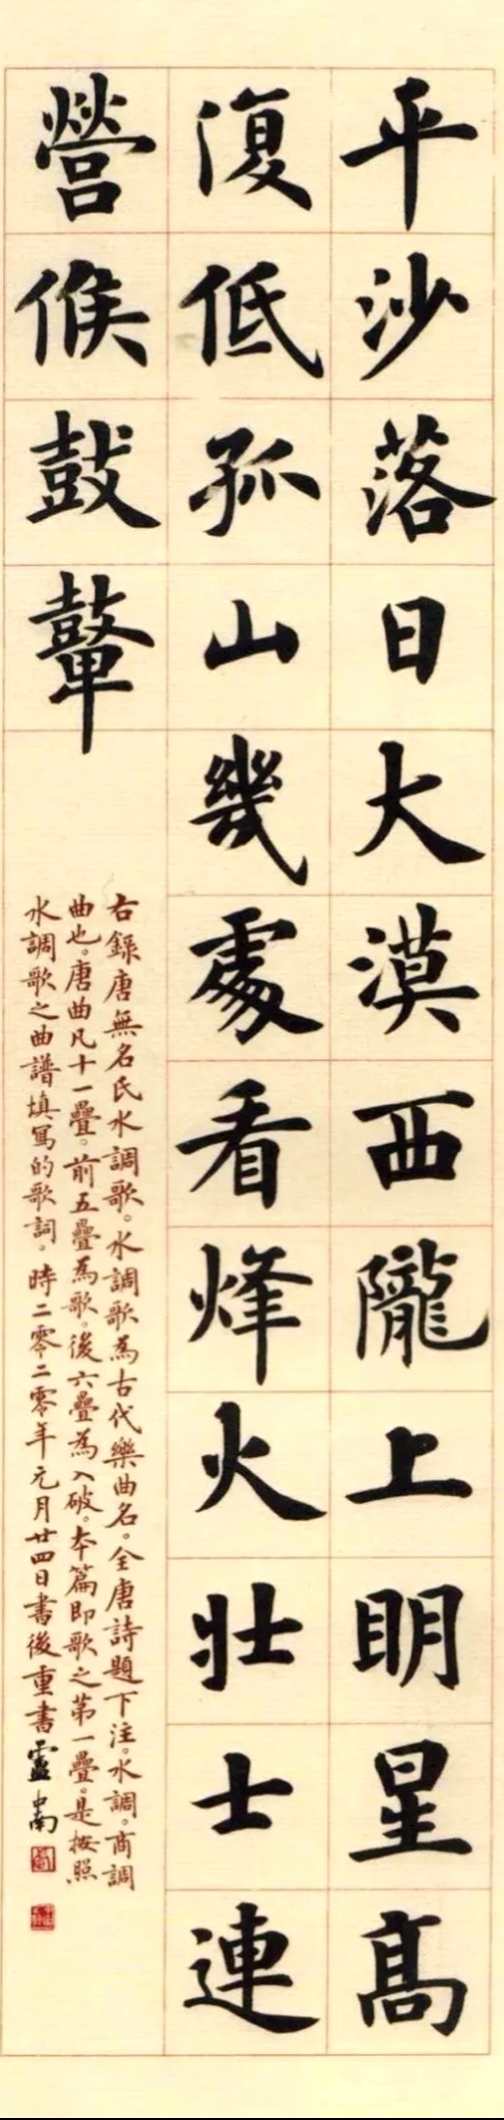 平沙落日大漠西隴上明星高
復低孤山幾處看烽火壯士連
營候鼓鼙
右錄唐無名氏水調歌。水調歌為古代樂曲名。全唐詩題下注。水調。商調
曲也。唐曲凡十一疊。前五疊為歌。後六疊為入破。本篇即歌之第一疊。是按照
水調歌之曲譜填寫的歌詞。時二零二零年元月廿四日書後重書